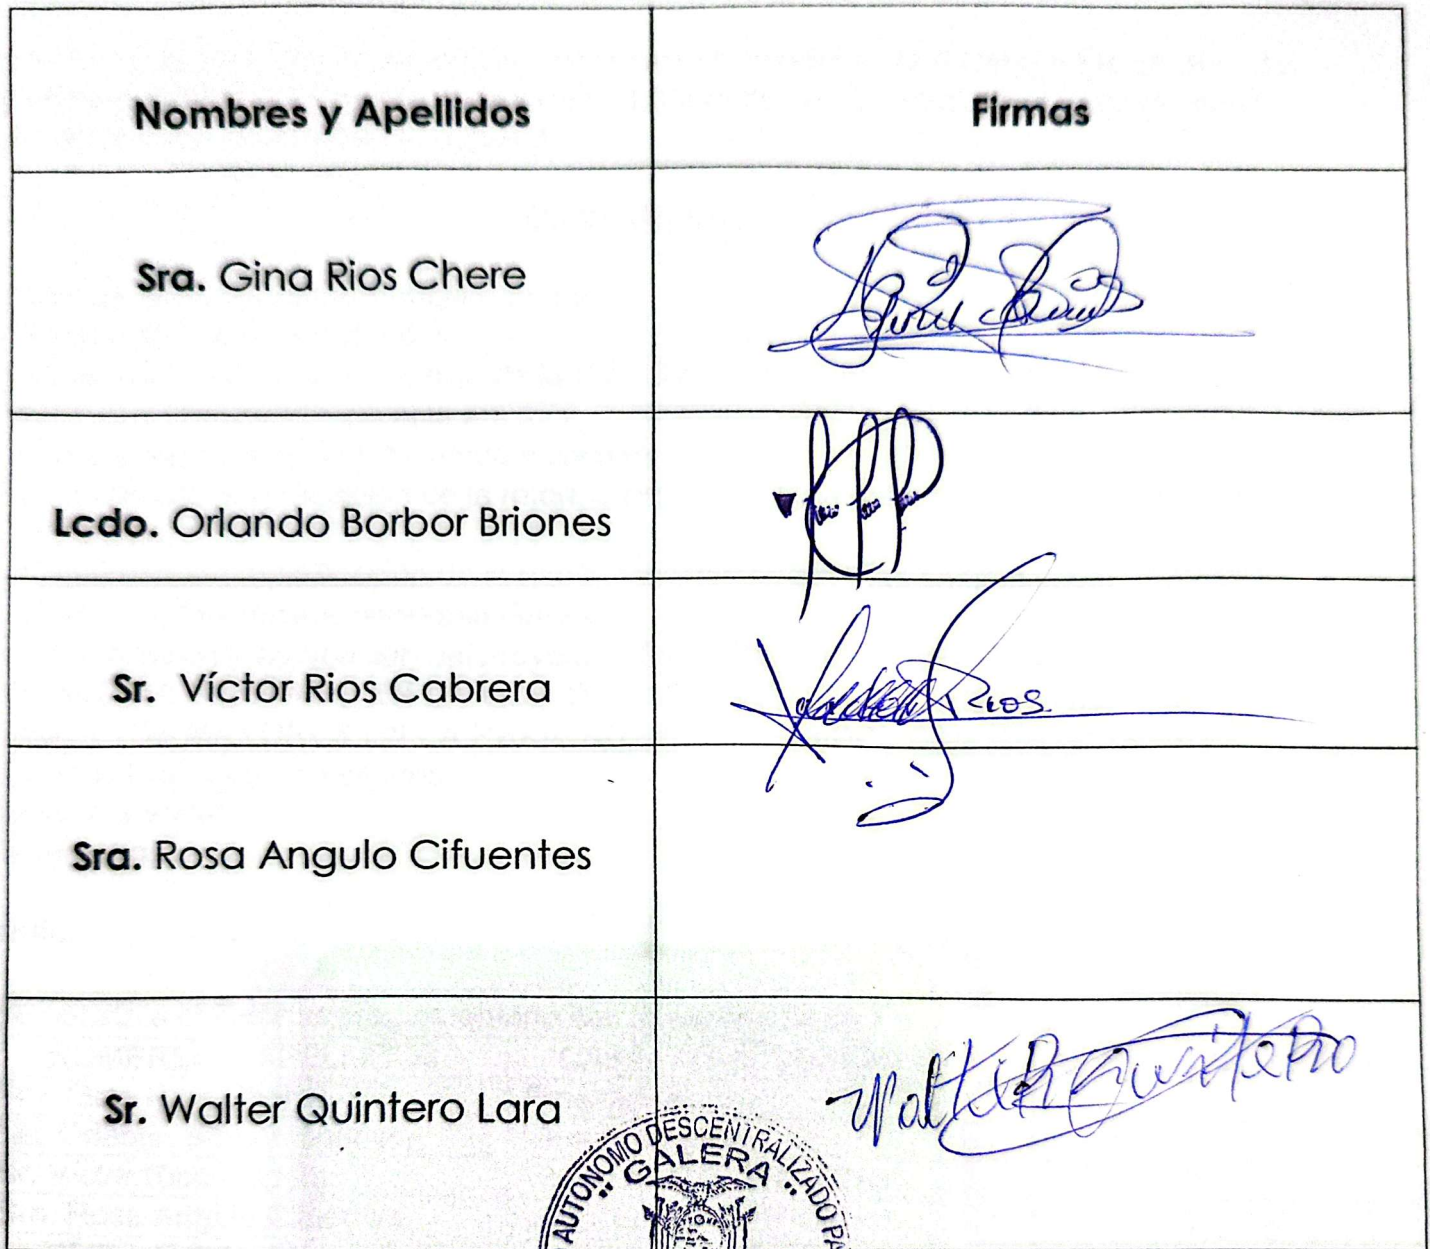 Nombres y Apellidos
Firmas
Sra. Gina Rios Chere
Lcdo. Orlando Borbor Briones
Sr. Víctor Rios Cabrera
Rios
Sra. Rosa Angulo Cifuentes
Sr. Walter Quintero Lara
Walter Quintero
AUTONOMO DESCENTRALIZADO PA
"GALERA"